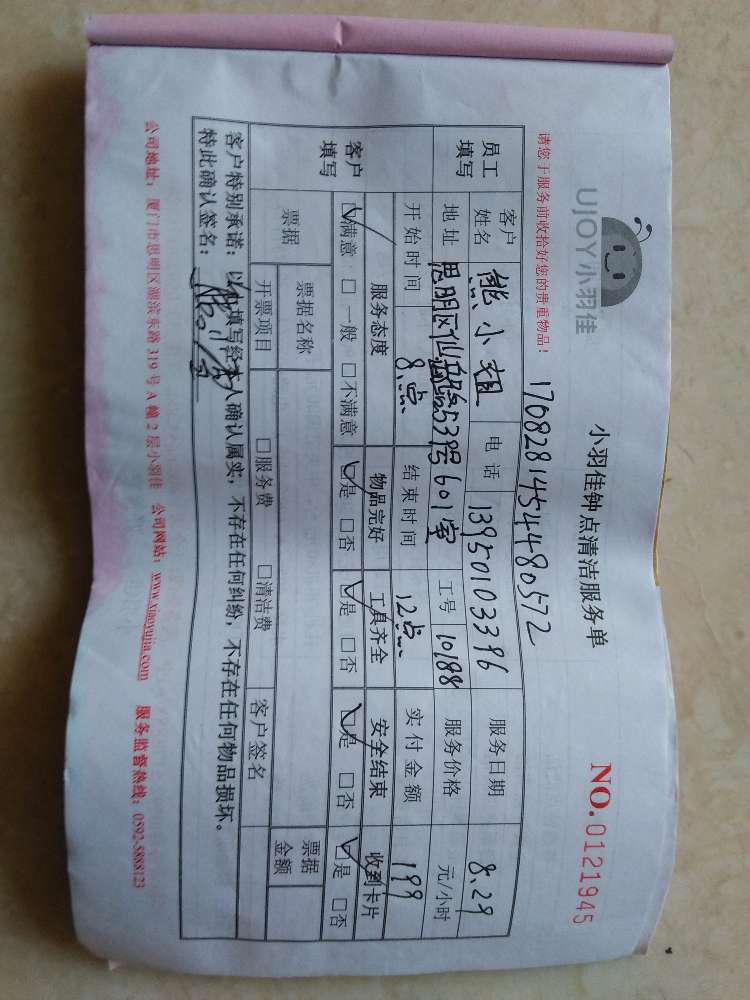 UJOY小羽佳
小羽佳钟点清洁服务单
NO.0121945
请您于服务前收拾好您的贵重物品！
17082814544480572
员工填写 客户姓名 熊小姐 电话 13950103396 服务日期 8.29
地址 思明区仙岳路539号601室 工号 10188 服务价格 元/小时
开始时间 8点 结束时间 12点 实付金额 199
客户填写 服务态度 物品完好 工具齐全 安全结束 收到卡片
☑满意 □一般 □不满意 ☑是 □否 ☑是 □否 ☑是 □否 ☑是 □否
票据 票据名称 票据金额
开票项目 □服务费 □清洁费 客户签名
客户特别承诺：以上填写经本人确认属实，不存在任何纠纷，不存在任何物品损坏。
特此确认签名：
公司地址：厦门市思明区湖滨东路319号A幢2层小羽佳 公司网站：www.xiaoyujia.com 服务监督热线：0592-5888123